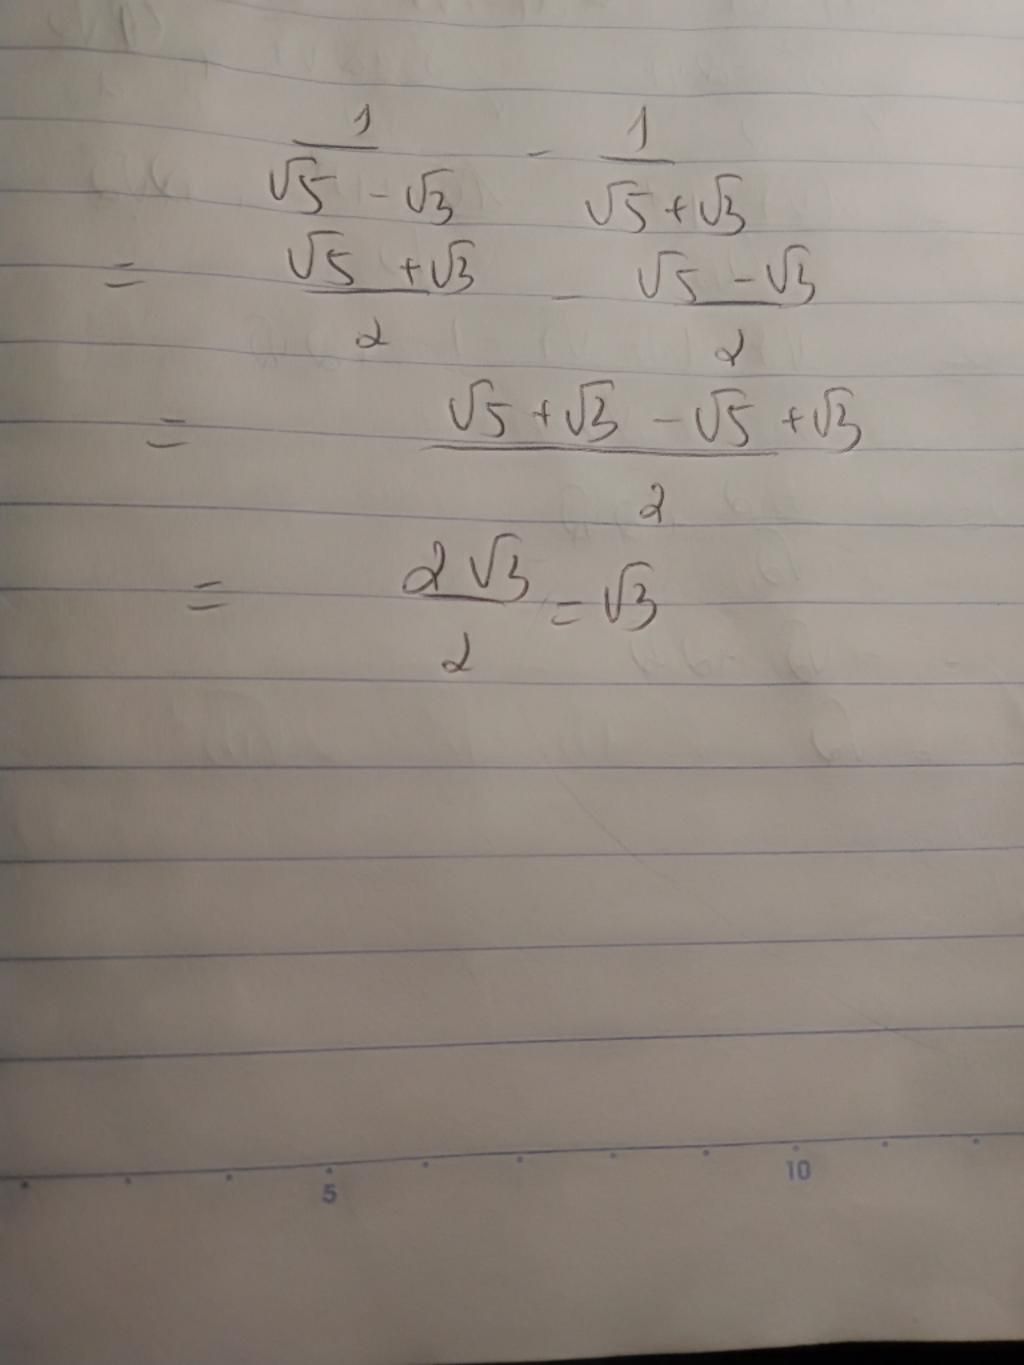 1/(√5 - √3) - 1/(√5 + √3)
= (√5 + √3)/2 - (√5 - √3)/2
= (√5 + √3 - √5 + √3)/2
= 2√3/2 = √3
5 10